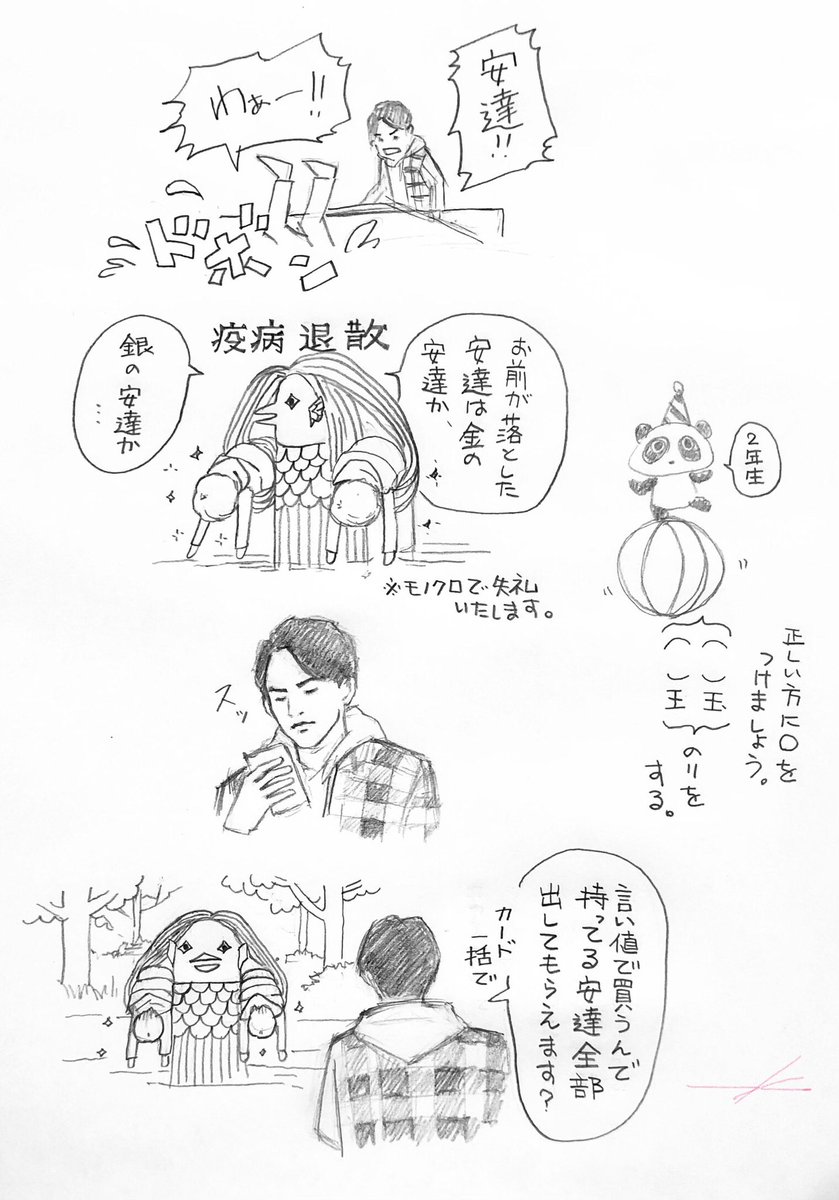 安達!!
わぁー!!
ドボン
疫病退散
お前が落とした
安達は金の
安達か、
銀の安達か
…
※モノクロで失礼
いたします。
2年生
正しい方に○を
つけましょう。
( )玉
( )王
のりを
する。
スッ
言い値で買うんで
持ってる安達全部
出してもらえます?
カード
一括で